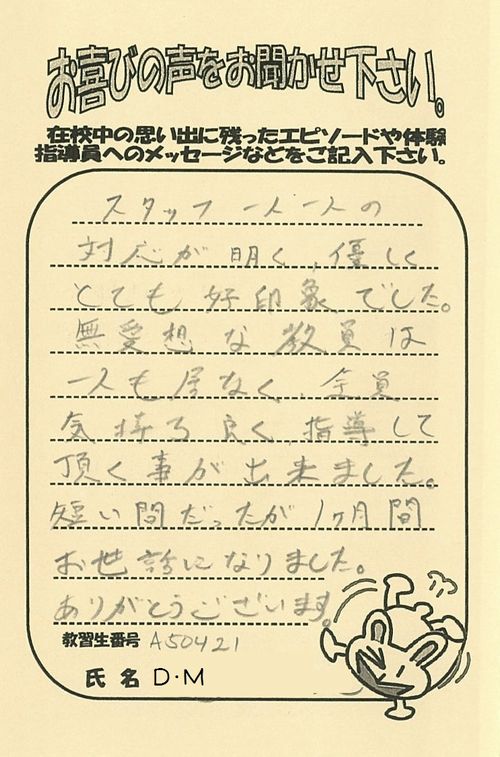 お喜びの声をお聞かせ下さい。
在校中の思い出に残ったエピソードや体験
指導員へのメッセージなどをご記入下さい。
スタッフ一人一人の
対応が明く、優しく
とても好印象でした。
無愛想な教員は
一人も居なく、全員
気持ち良く指導して
頂く事が出来ました。
短い間だったが1ヶ月間
お世話になりました。
ありがとうございます。
教習生番号 A50421
氏名 D・M